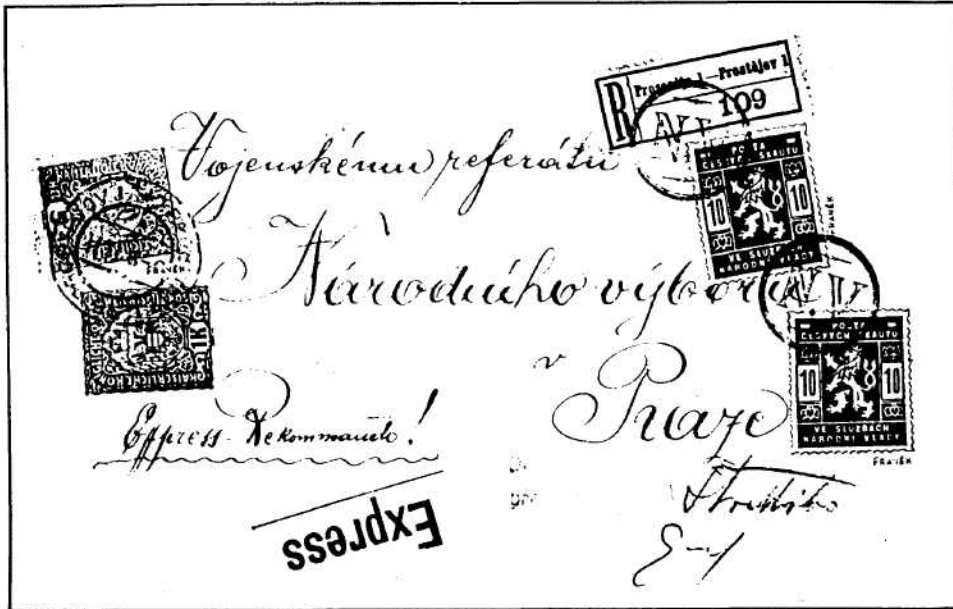 R
Prossnitz 1—Prostějov 1
109
Vojenskému referátu
Národního výboru
v
Praze
Express-Rekommando!
Express
POŠTA
ČESKÝCH SKAUTŮ
10 10
VE SLUŽBÁCH
NÁRODNÍ VLÁDY
FRANĚK
POŠTA
ČESKÝCH SKAUTŮ
10 10
VE SLUŽBÁCH
NÁRODNÍ VLÁDY
FRANĚK
FRANĚK
1K